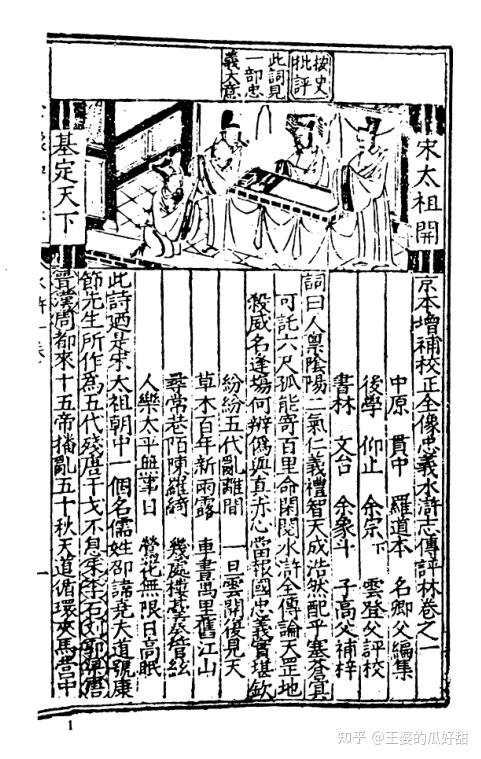 按史
批評
此詞見
一部忠
義大意
宋太祖開
基定天下
京本增補校正全像忠義水滸志傳評林卷之一
中原 貫中 羅道本 名卿父編集
後學 仰止 余宗下 雲登父評校
書林 文台 余象斗 子高父補梓
詞曰人禀陰陽二氣仁義禮智天成浩然配乎塞蒼冥
可託六尺孤能寄百里命閑閱水滸全傳論天罡地
殺威名逢場何辨偽與真赤心當報國忠義實堪欽
紛紛五代亂離間 一旦雲開復見天
草木百年新雨露 車書萬里舊江山
尋常巷陌陳羅綺 幾處樓臺奏管絃
人樂太平無事日 鶯花無限日高眠
此詩廼是宋太祖朝中一個名儒姓邵諱堯大道號康
節先生所作為五代殘唐干戈不息朱李石劉郭梁唐
晉漢周都來十五帝播亂五十秋天道循環夾馬營中
水滸一卷
一
1
知乎 @王婆的瓜好甜